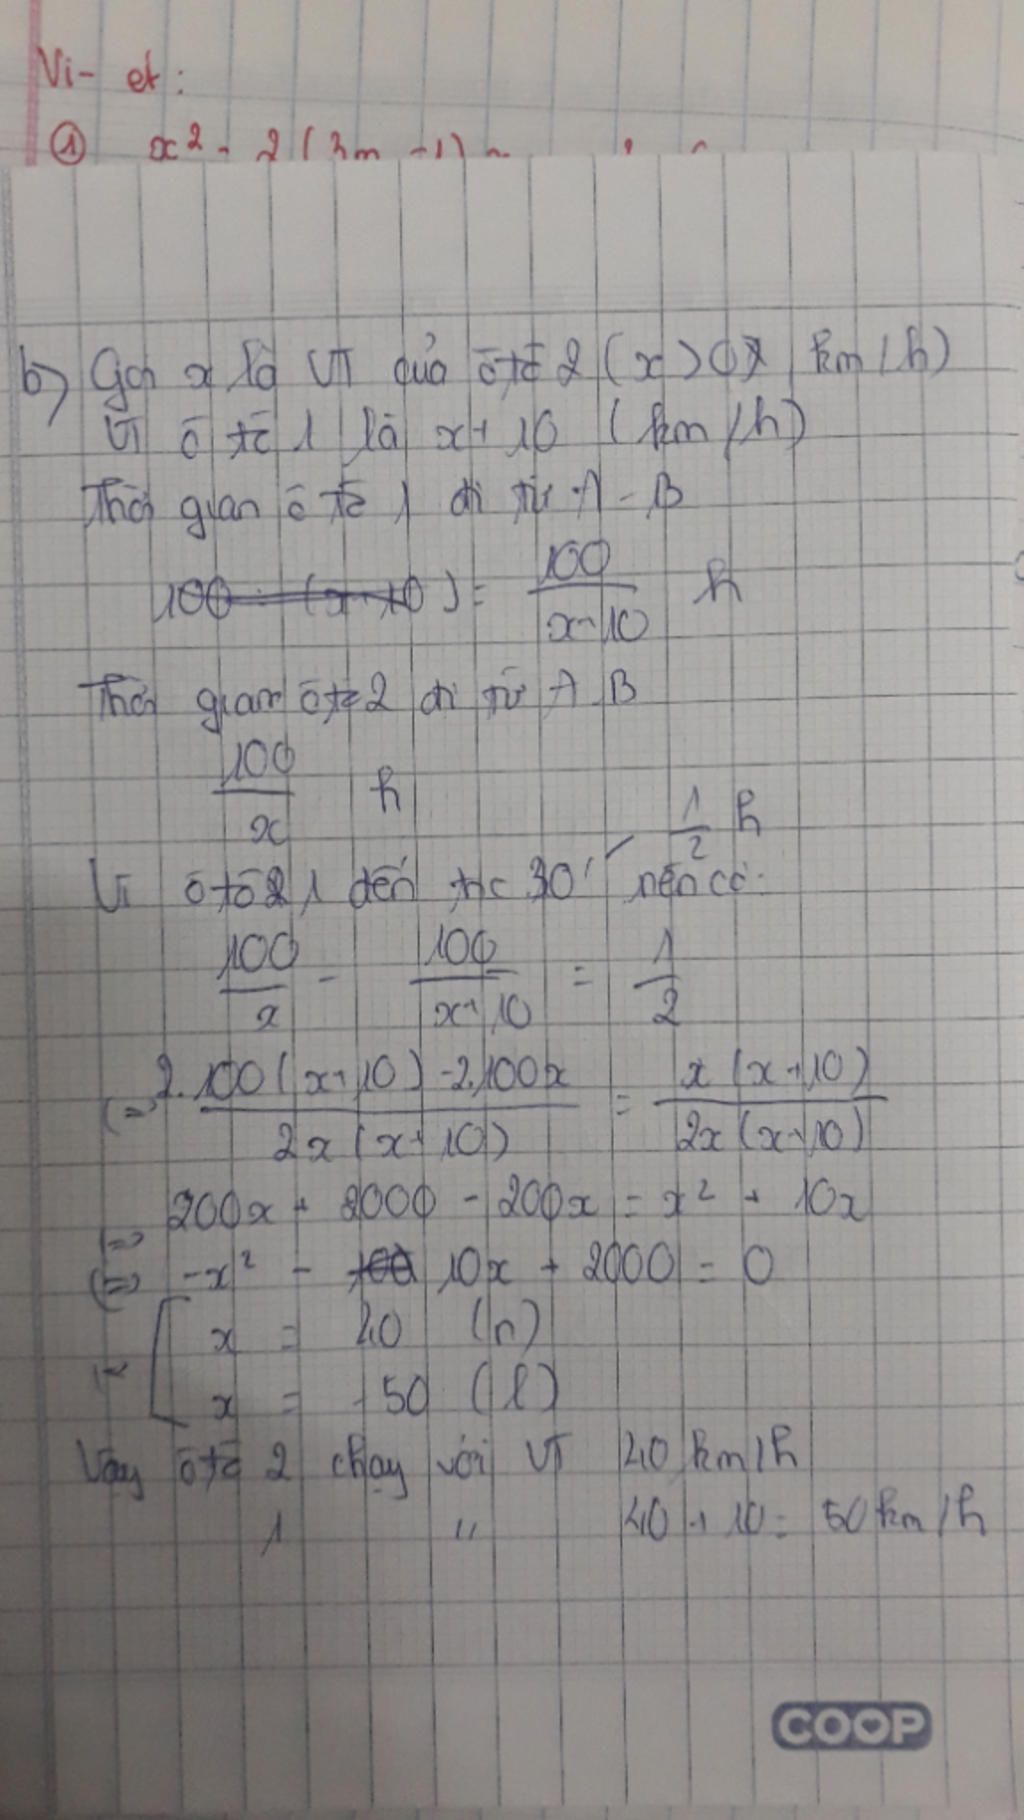 Vi-et:
① x² - 2(3m-1)
b) Gọi x là VT của ôtô 2 (x>0, km/h)
VT ô tô 1 là x+10 (km/h)
Thời gian ô tô 1 đi từ A-B
100 : (x+10) = 100/(x+10) h
Thời gian ôtô 2 đi từ A B
100/x h
1/2 h
Vì ôtô 1 đến trc 30' nên có:
100/x - 100/(x+10) = 1/2
(=) (2.100(x+10) - 2.100x)/(2x(x+10)) = x(x+10)/(2x(x+10))
(=) 200x + 2000 - 200x = x² + 10x
(=) -x² - 10x + 2000 = 0
[ x = 40 (n)
x = -50 (l)
Vậy ôtô 2 chạy với VT 40 km/h
1 " 40 + 10 = 50 km/h
COOP